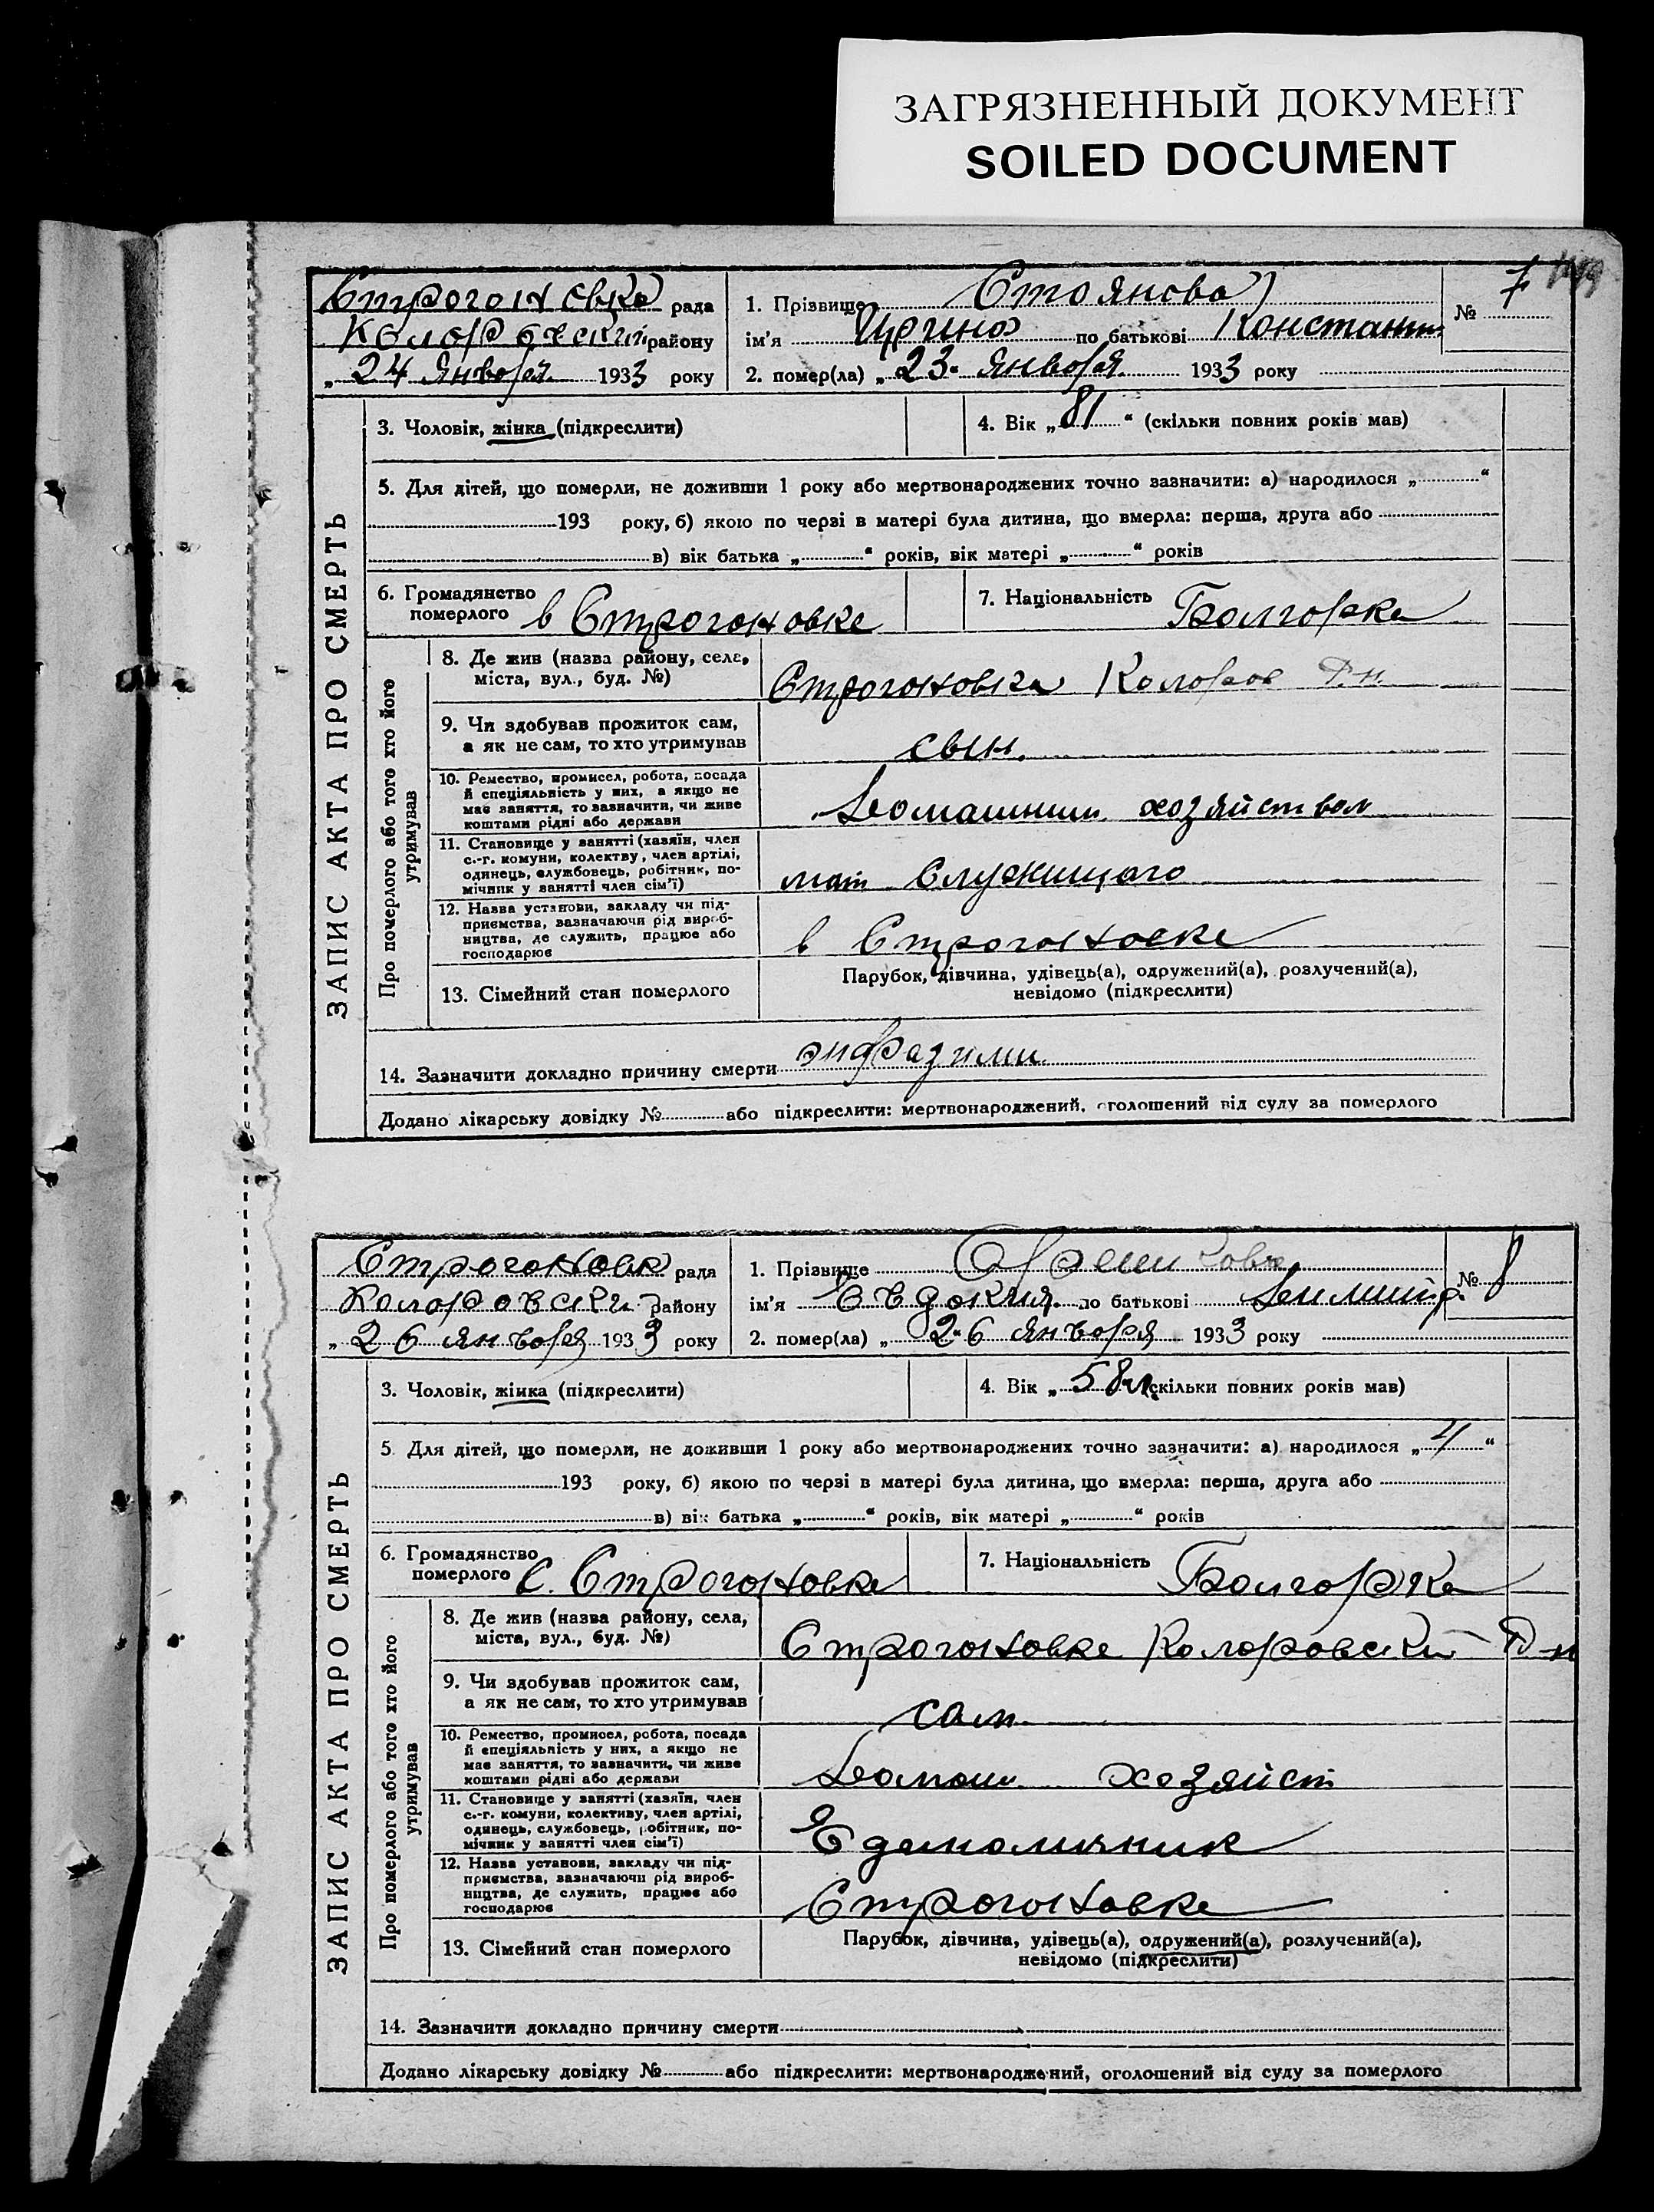 ЗАГРЯЗНЕННЫЙ ДОКУМЕНТ
SOILED DOCUMENT
ЗАПИС АКТА ПРО СМЕРТЬ
Строгоновка рада
Коларовский району
„ 24 Января 1933 року
1. Прізвище Стоянова
№ 7
ім'я Ирина по батькові Констант
2. помер(ла) „ 23. Января 1933 року
3. Чоловік, жінка (підкреслити)
4. Вік „ 81 “ (скільки повних років мав)
5. Для дітей, що померли, не доживши 1 року або мертвонароджених точно зазначити: а) народилося „ “
193 року, б) якою по черзі в матері була дитина, що вмерла: перша, друга або
в) вік батька „ “ років, вік матері „ “ років
6. Громадянство
померлого в Строгоновке
7. Національність Болгарка
Про померлого або того хто його
утримував
8. Де жив (назва району, села,
міста, вул., буд. №)
Строгоновка Коларов Р.н.
9. Чи здобував прожиток сам,
а як не сам, то хто утримував
сын.
10. Ремество, промисел, робота, посада
й спеціяльність у них, а якщо не
має заняття, то зазначити, чи живе
коштами рідні або держави
Домашним хозяйством
11. Становище у занятті (хазяїн, член
с.-г. комуни, колективу, член артілі,
одинець, службовець, робітник, по-
мічник у занятті член сім'ї)
мат Служищого
12. Назва установи, закладу чи під-
приємства, зазначаючи рід вироб-
ництва, де служить, працює або
господарює
в Строгоновке
13. Сімейний стан померлого
Парубок, дівчина, удівець(а), одружений(а), розлучений(а),
невідомо (підкреслити)
14. Зазначити докладно причину смерти
Додано лікарську довідку № або підкреслити: мертвонароджений, оголошений від суду за померлого
ЗАПИС АКТА ПРО СМЕРТЬ
Строгоновк рада
Коларовски району
„ 26 января 1933 року
1. Прізвище
№ 8
ім'я Евдокия по батькові Димитр
2. помер(ла) „ 26 января 1933 року
3. Чоловік, жінка (підкреслити)
4. Вік „ 58 л. (скільки повних років мав)
5. Для дітей, що померли, не доживши 1 року або мертвонароджених точно зазначити: а) народилося „ “
193 року, б) якою по черзі в матері була дитина, що вмерла: перша, друга або
в) вік батька „ “ років, вік матері „ “ років
6. Громадянство
померлого С. Строгоновке
7. Національність Болгорка
Про померлого або того хто його
утримував
8. Де жив (назва району, села,
міста, вул., буд. №)
Строгоновке Коларовский Р-н
9. Чи здобував прожиток сам,
а як не сам, то хто утримував
сам.
10. Ремество, промисел, робота, посада
й спеціяльність у них, а якщо не
має заняття, то зазначити, чи живе
коштами рідні або держави
Домаш хозяйст
11. Становище у занятті (хазяїн, член
с.-г. комуни, колективу, член артілі,
одинець, службовець, робітник, по-
мічник у занятті член сім'ї)
12. Назва установи, закладу чи під-
приємства, зазначаючи рід вироб-
ництва, де служить, працює або
господарює
Строгоновке
13. Сімейний стан померлого
Парубок, дівчина, удівець(а), одружений(а), розлучений(а),
невідомо (підкреслити)
14. Зазначити докладно причину смерти
Додано лікарську довідку № або підкреслити: мертвонароджений, оголошений від суду за померлого